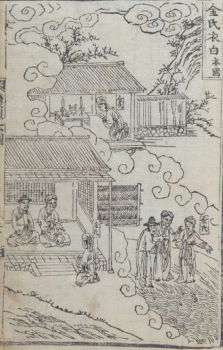 金氏衣白本國
金氏